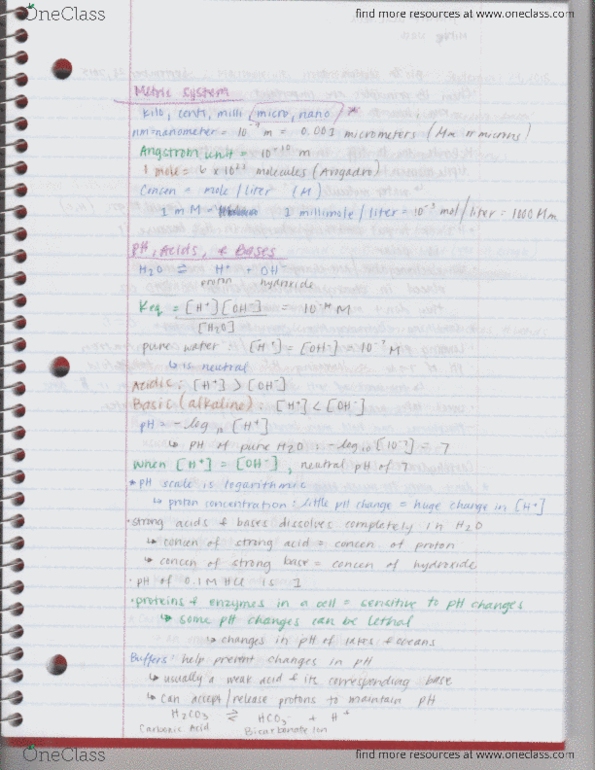 OneClass find more resources at www.oneclass.com
Metric system
kilo, centi, milli, micro, nano *
nm=nanometer = 10⁻⁹ m = 0.001 micrometers (μm or microns)
Angstrom unit = 10⁻¹⁰ m
1 mole = 6 x 10²³ molecules (Avogadro)
Concen = mole/liter (M)
1 mM = 1 millimole/liter = 10⁻³ mol/liter = 1000 μm
pH, Acids, & Bases
H₂O ⇌ H⁺ + OH⁻
proton hydroxide
Keq = [H⁺][OH⁻] = 10⁻¹⁴ M
[H₂O]
pure water [H⁺] = [OH⁻] = 10⁻⁷ M
↳ is neutral
Acidic: [H⁺] > [OH⁻]
Basic (alkaline): [H⁺] < [OH⁻]
pH = -log₁₀ [H⁺]
↳ pH of pure H₂O = -log₁₀ [10⁻⁷] = 7
when [H⁺] = [OH⁻], neutral pH of 7
* pH scale is logarithmic
↳ proton concentration: little pH change = huge change in [H⁺]
• strong acids & bases dissolves completely in H₂O
↳ concen of strong acid = concen of proton
↳ concen of strong base = concen of hydroxide
• pH of 0.1 M HCl is 1
• proteins & enzymes in a cell = sensitive to pH changes
↳ some pH changes can be lethal
↳ changes in pH of lakes & oceans
Buffers: help prevent changes in pH
↳ usually a weak acid & its corresponding base
↳ can accept/release protons to maintain pH
H₂CO₃ ⇌ HCO₃⁻ + H⁺
Carbonic Acid Bicarbonate Ion
OneClass find more resources at www.oneclass.com